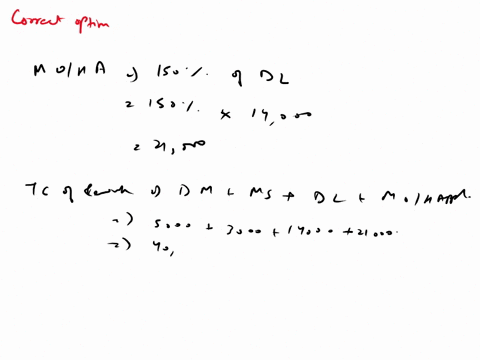 Correct option
M O/H A => 150% of DL
= 150% x 14,000
= 21,000
TC of of DM + MS + DL + M O/H Appl.
=) 5000 + 3000 + 14000 + 21000.
=) 40,